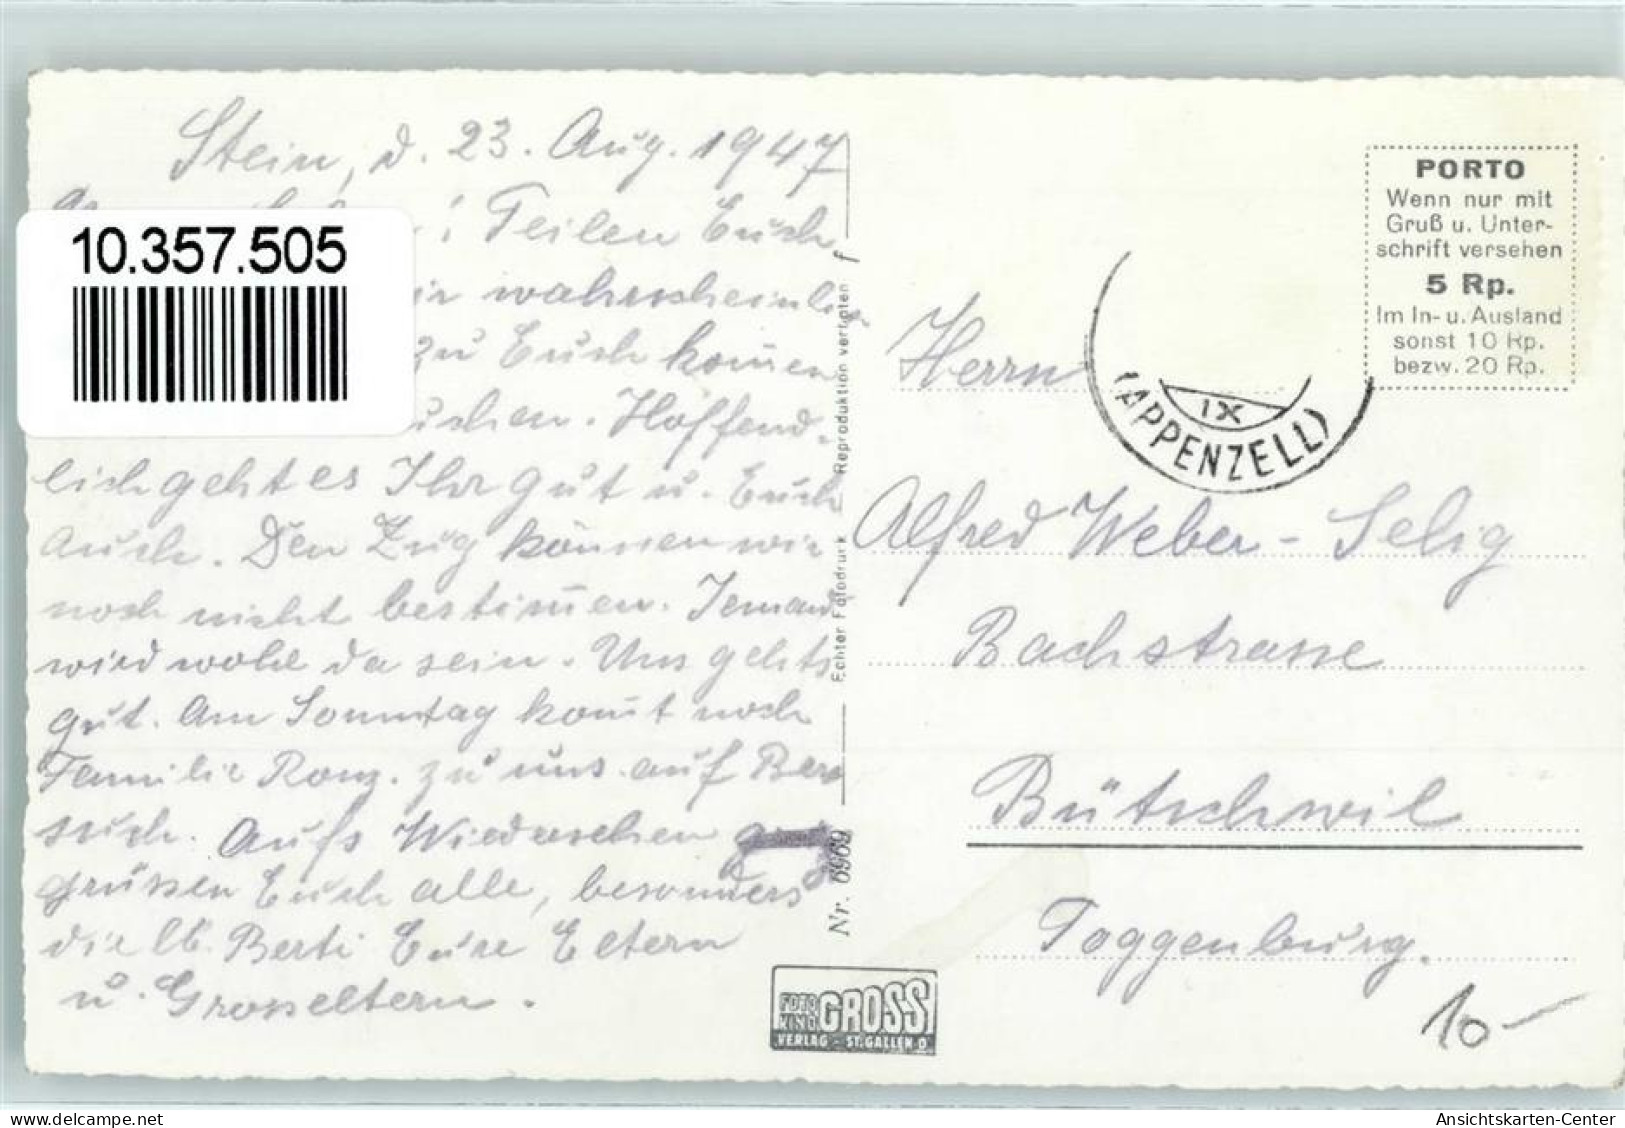 Stein, d. 23. Aug. 1947
! Teilen Euch
wir wahrscheinlich
zu Euch komen
suchen. Hoffend-
lich geht es Ihr gut u. Euch
auch. Den Zug können wir
noch nicht bestimen. Jemand
wird wohl da sein. Uns gehts
gut. Am Sonntag komt noch
Familie Ronz. zu uns auf Be
such. Aufs Wiedersehen
grüssen Euch alle, besonders
die lb. Berti Eure Eltern
u. Grosseltern.
10.357.505
Echter Fotodruck Reproduktion verboten f
Nr. 6969
FOTO KINO GROSS
VERLAG - ST. GALLEN O
PORTO
Wenn nur mit
Gruß u. Unter-
schrift versehen
5 Rp.
Im In- u. Ausland
sonst 10 Rp.
bezw. 20 Rp.
IX
(APPENZELL)
Herrn
Alfred Weber-Selig
Bachstrasse
Bütschwil
Toggenburg.
10-
www.delcampe.net
Ansichtskarten-Center